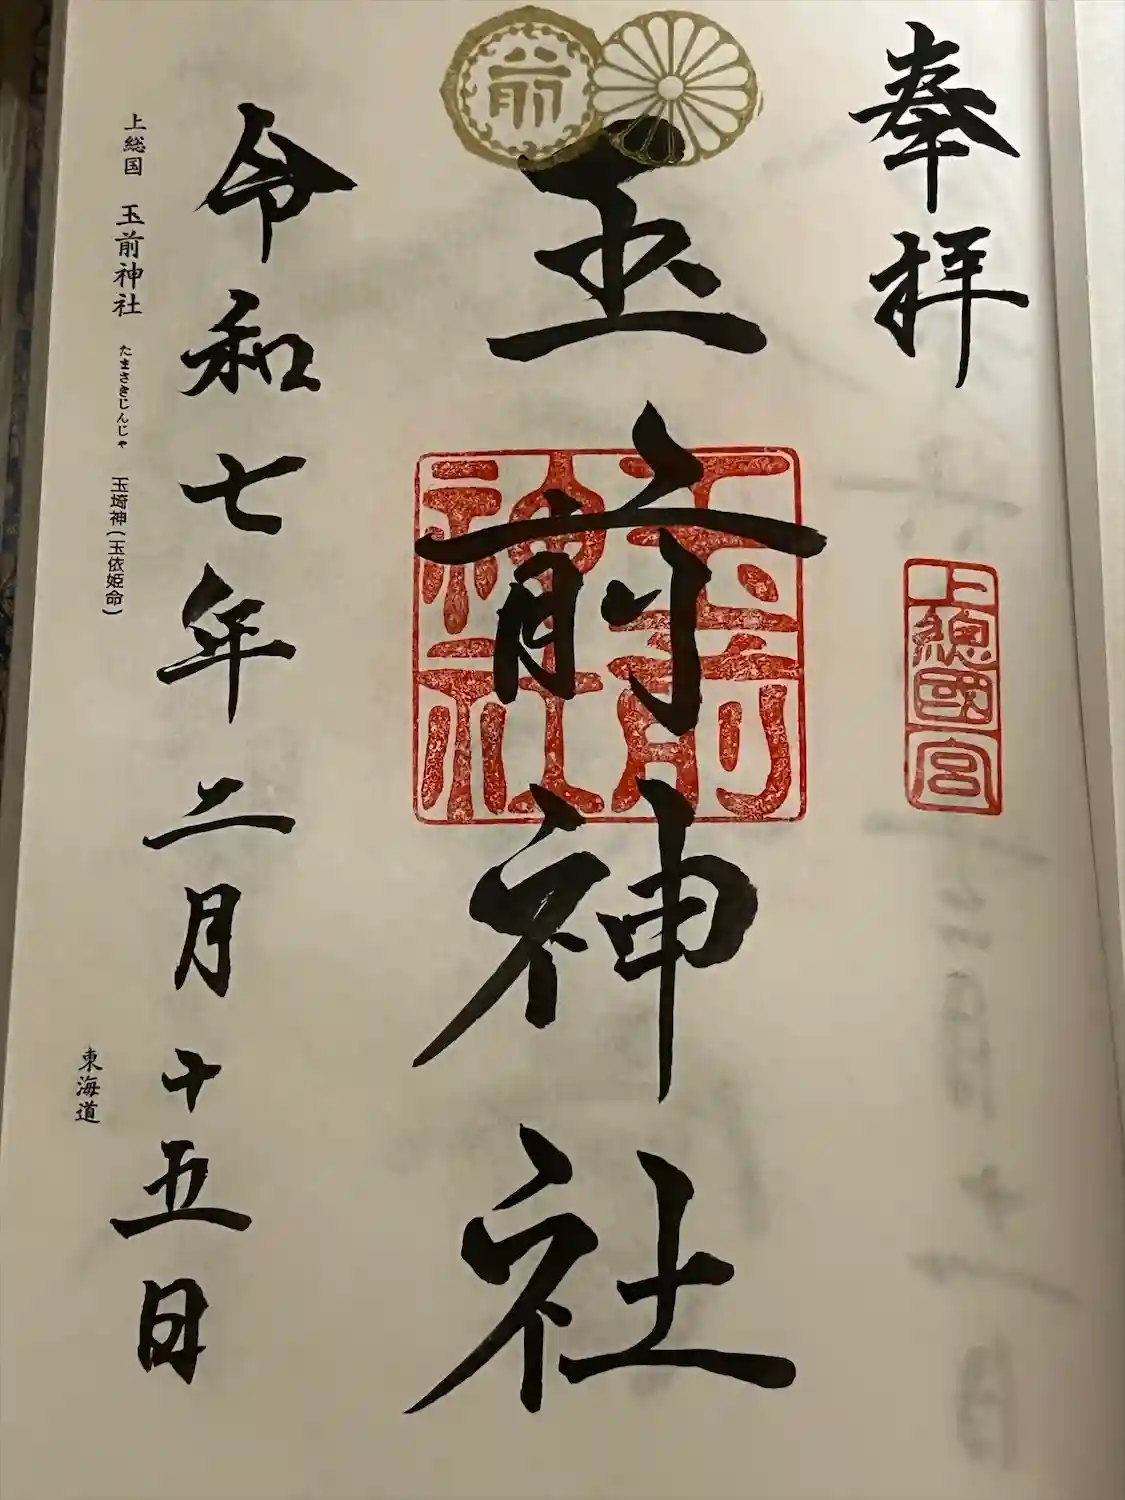 奉拝
上總國一宮
前
玉前神社
玉前神社
令和七年二月十五日
上総国 玉前神社 たまさきじんじゃ 玉埼神(玉依姫命)
東海道